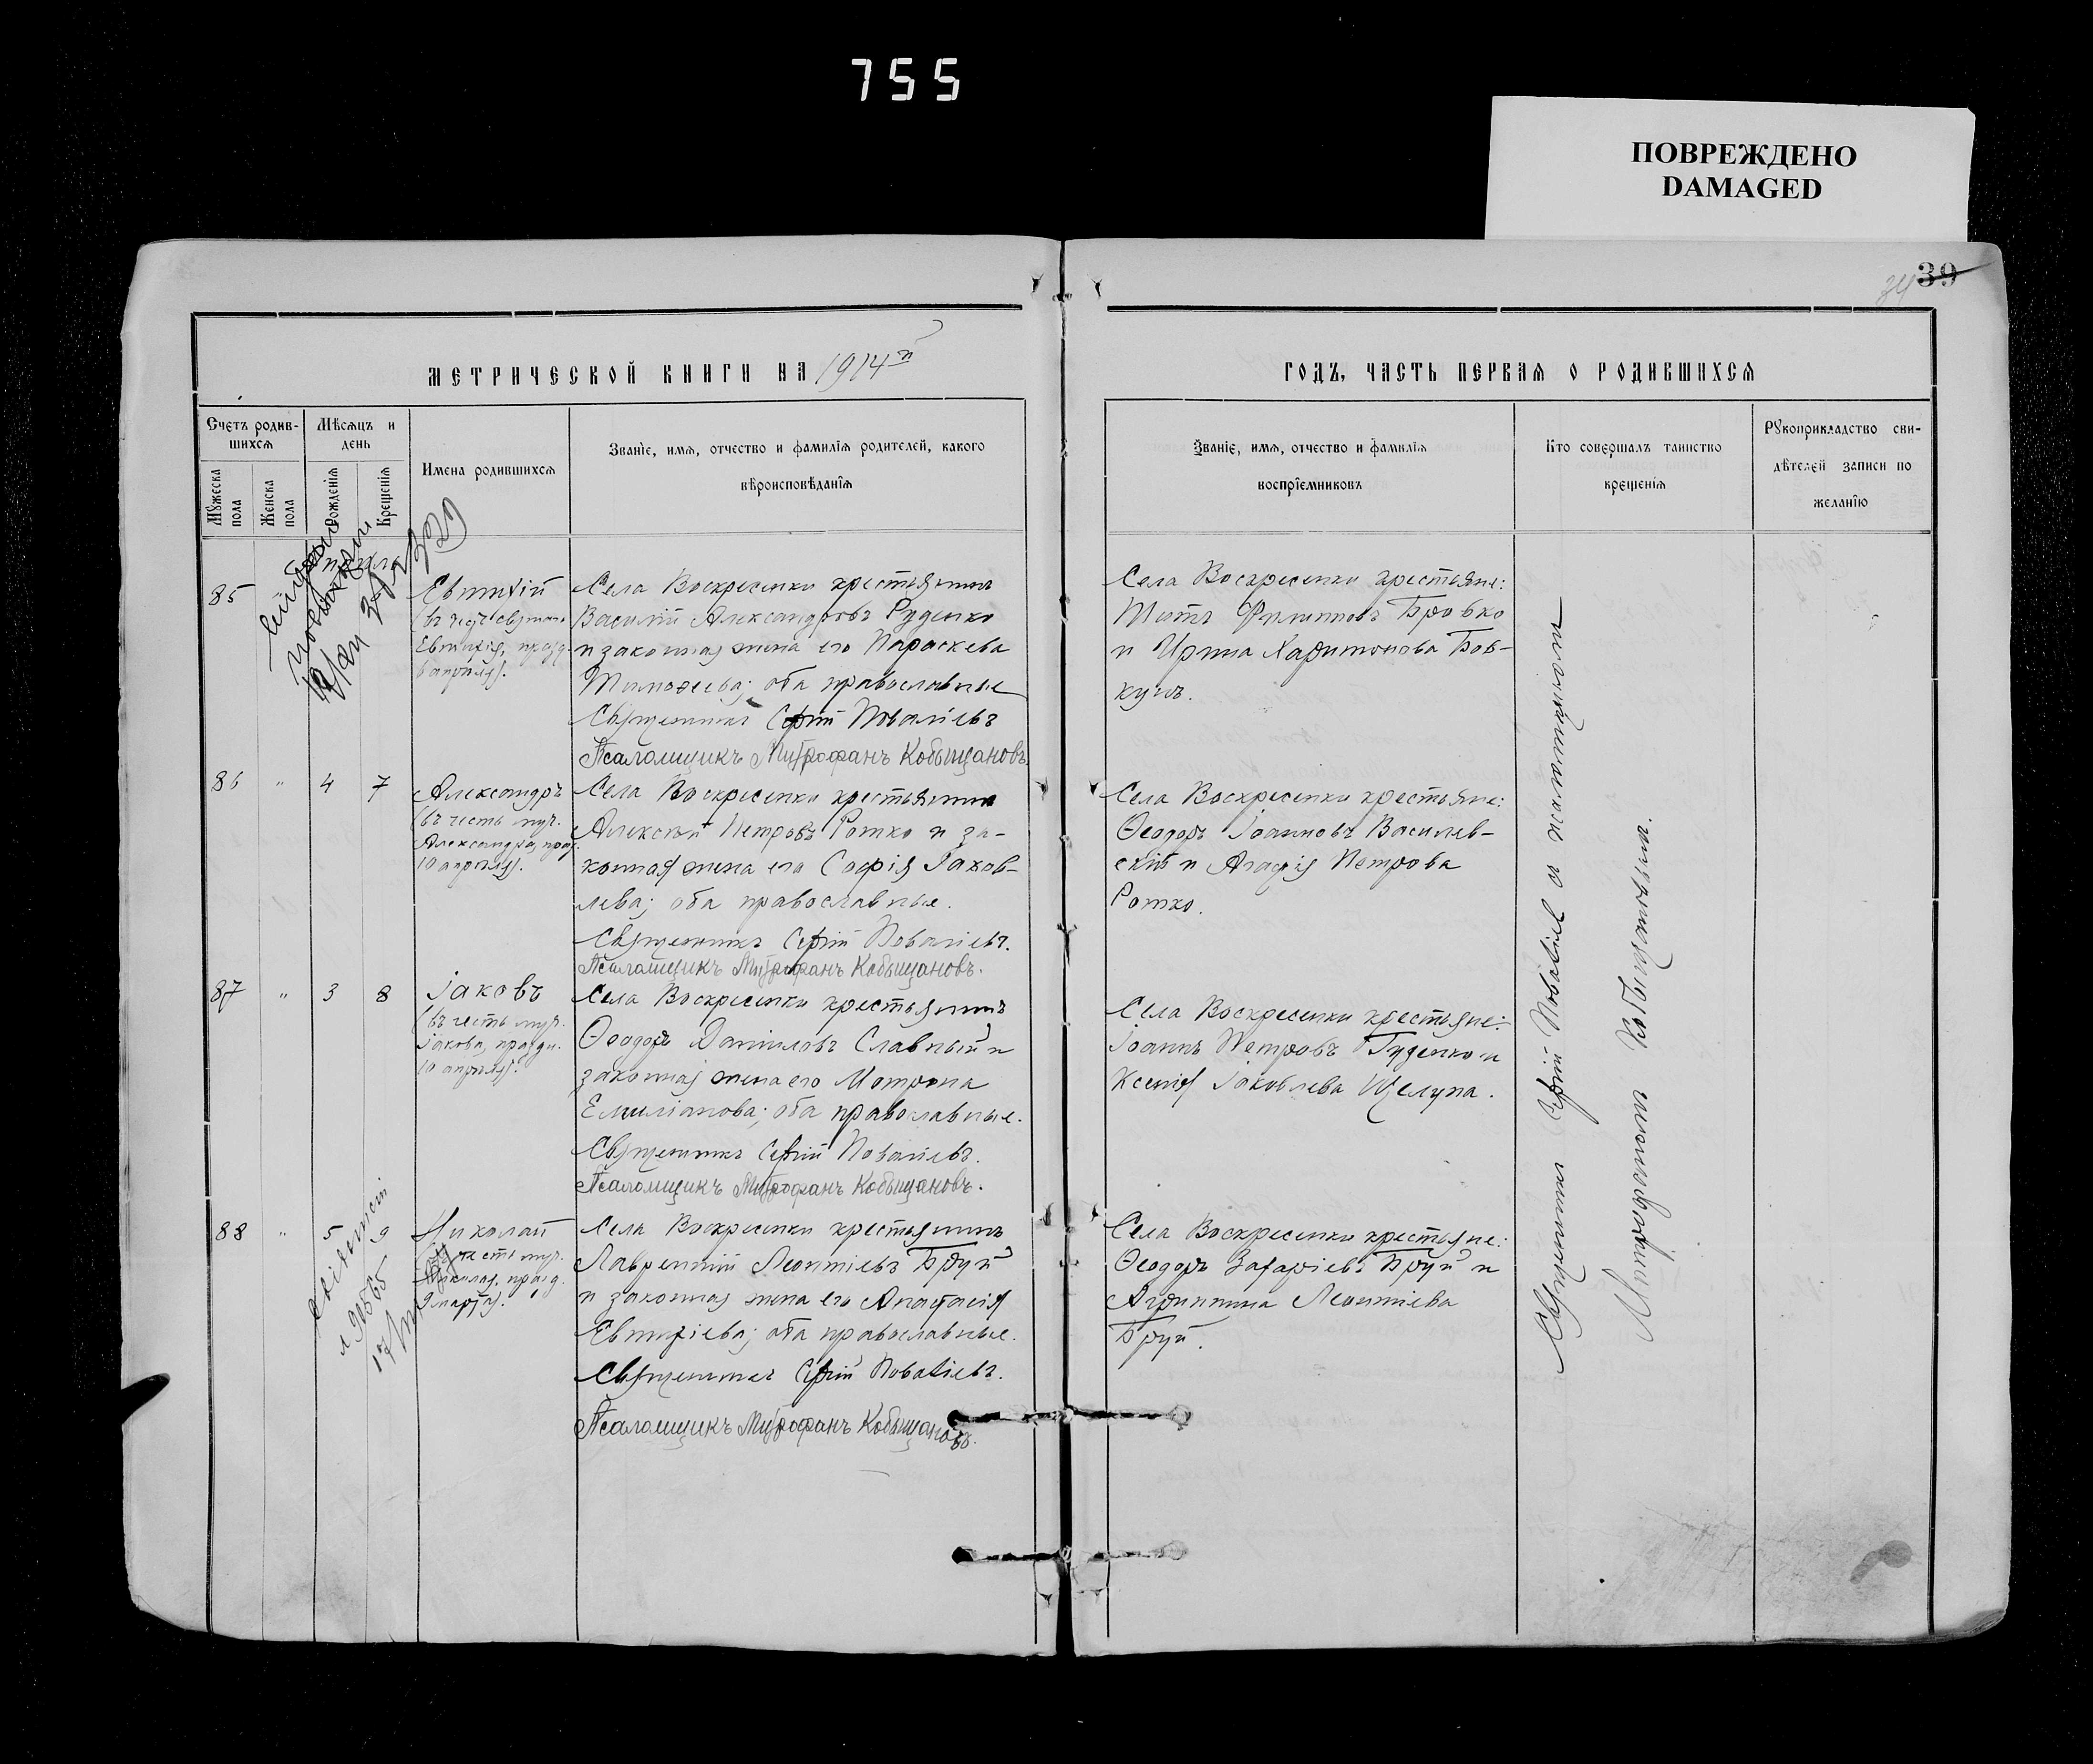 755
ПОВРЕЖДЕНО
DAMAGED
39
34
МЕТРИЧЕСКОЙ КНИГИ НА 1914й
Счетъ родив-
шихся
Мѣсяцъ и
день
Мужеска
пола
Женска
пола
Рожденія
Крещенія
Имена родившихся
Званіе, имя, отчество и фамилія родителей, какого
вѣроисповѣданія
85
Евтихій
(въ честь
Евтихія, празд.
6 апрѣля).
Села Воскресенки крестьянинъ
Василій Александровъ Руденко
и законная жена его Параскева
Тимоѳеева; оба православные
Священникъ Сергій Поваліевъ
Псаломщикъ Митрофанъ Кобыщановъ
86 " 4 7
Александръ
(въ честь муч.
Александра, праз.
10 апрѣля).
Села Воскресенки крестьянинъ
Алексѣй Петровъ Ротко и за-
конная жена его Софія Іаков-
лева; оба православные.
Священникъ Сергій Поваліевъ.
Псаломщикъ Митрофанъ Кобыщановъ.
87 " 3 8
Іаковъ
(въ честь муч.
Іакова, праздн.
10 апрѣля).
Села Воскресенки крестьянинъ
Ѳеодоръ Даниловъ Славный и
законная жена его Матрона
Емиліанова; оба православные.
Священникъ Сергій Поваліевъ.
Псаломщикъ Митрофанъ Кобыщановъ.
88 " 5 9
Николай
честь муч.
Николая, празд.
9 марта).
Села Воскресенки крестьянинъ
Лаврентій Леонтіевъ Бруй
и законная жена его Анастасія
Евтихіева; оба православные.
Священникъ Сергій Поваліевъ.
Псаломщикъ Митрофанъ Кобыщановъ.
ГОДЪ, ЧАСТЬ ПЕРВАЯ О РОДИВШИХСЯ
Званіе, имя, отчество и фамилія
воспріемниковъ
Кто совершалъ таинство
крещенія
Рукоприкладство сви-
дѣтелей записи по
желанію
Села Воскресенки крестьяне:
Титъ Филипповъ Бровко
и Ирина Харитонова Бов-
кунъ.
Села Воскресенки крестьяне:
Ѳеодоръ Іоанновъ Василев-
скій и Агафія Петрова
Ротко.
Села Воскресенки крестьяне:
Іоаннъ Петровъ Руденко и
Ксенія Іаковлева Щелупа.
Села Воскресенки крестьяне:
Ѳеодоръ Захаріевъ Бруй и
Агриппина Леонтіева
Бруй.
Священникъ Сергій Поваліевъ съ псаломщикомъ
Митрофаномъ Кобыщановымъ.